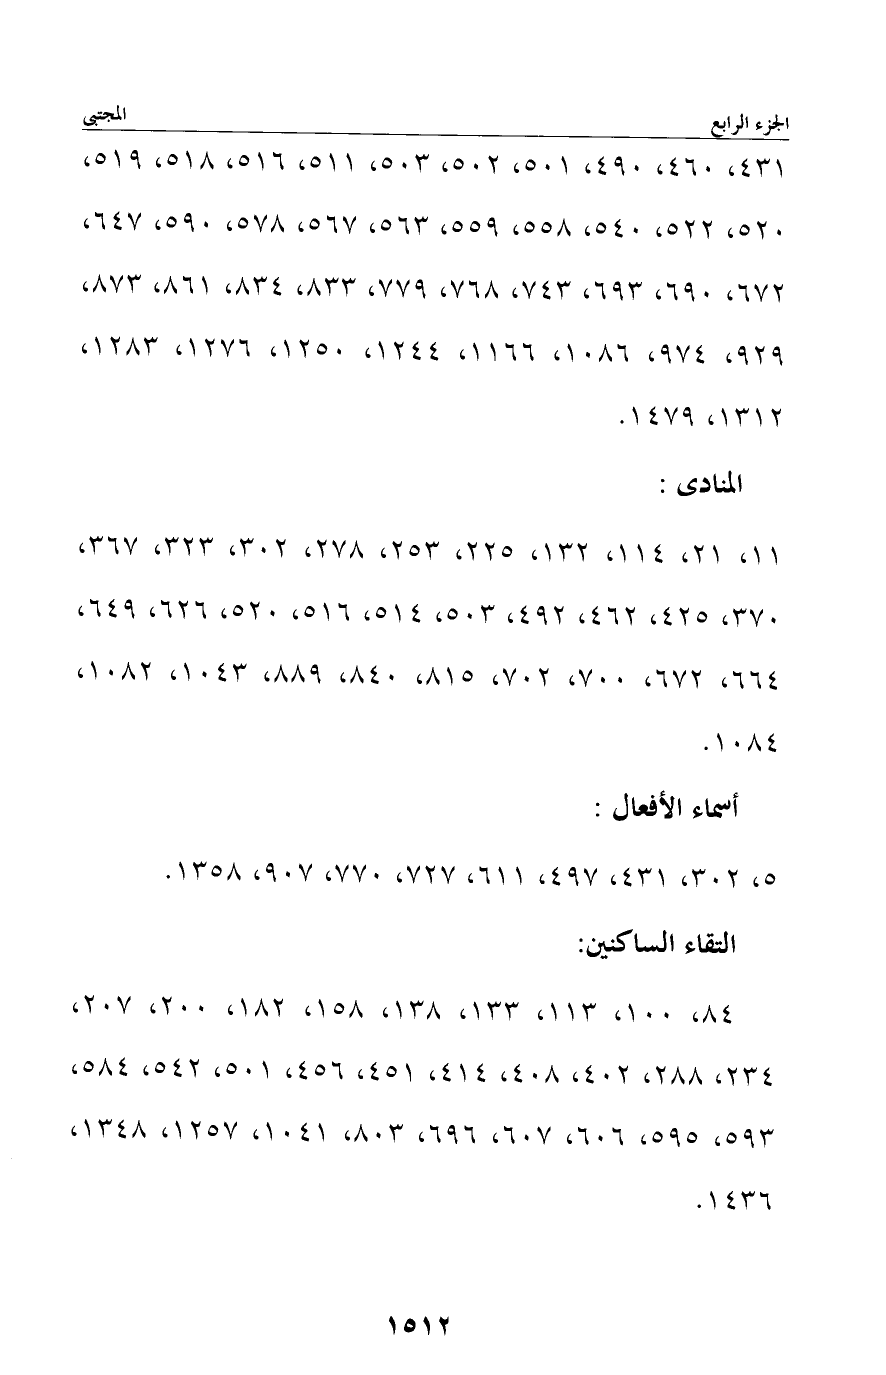 الجزء الرابع المجتبى
٤٣١، ٤٦٠، ٤٩٠، ٥٠١، ٥٠٢، ٥٠٣، ٥١١، ٥١٦، ٥١٨، ٥١٩،
٥٢٠، ٥٢٢، ٥٤٠، ٥٥٨، ٥٥٩، ٥٦٣، ٥٦٧، ٥٧٨، ٥٩٠، ٦٤٧،
٦٧٢، ٦٩٠، ٦٩٣، ٧٤٣، ٧٦٨، ٧٧٩، ٨٣٣، ٨٣٤، ٨٦١، ٨٧٣،
٩٢٩، ٩٧٤، ١٠٨٦، ١١٦٦، ١٢٤٤، ١٢٥٠، ١٢٧٦، ١٢٨٣،
١٣١٢، ١٤٧٩.
المنادى :
١١، ٢١، ١١٤، ١٣٢، ٢٢٥، ٢٥٣، ٢٧٨، ٣٠٢، ٣٢٣، ٣٦٧،
٣٧٠، ٤٢٥، ٤٦٢، ٤٩٢، ٥٠٣، ٥١٤، ٥١٦، ٥٢٠، ٦٢٦، ٦٤٩،
٦٦٤، ٦٧٢، ٧٠٠، ٧٠٢، ٨١٥، ٨٤٠، ٨٨٩، ١٠٤٣، ١٠٨٢،
١٠٨٤.
أسماء الأفعال :
٥، ٣٠٢، ٤٣١، ٤٩٧، ٦١١، ٧٢٧، ٧٧٠، ٩٠٧، ١٣٥٨.
التقاء الساكنين:
٨٤، ١٠٠، ١١٣، ١٣٣، ١٣٨، ١٥٨، ١٨٢، ٢٠٠، ٢٠٧،
٢٣٤، ٢٨٨، ٤٠٢، ٤٠٨، ٤١٤، ٤٥١، ٤٥٦، ٥٠١، ٥٤٢، ٥٨٤،
٥٩٣، ٥٩٥، ٦٠٦، ٦٠٧، ٦٩٦، ٨٠٣، ١٠٤١، ١٢٥٧، ١٣٤٨،
١٤٣٦.
١٥١٢